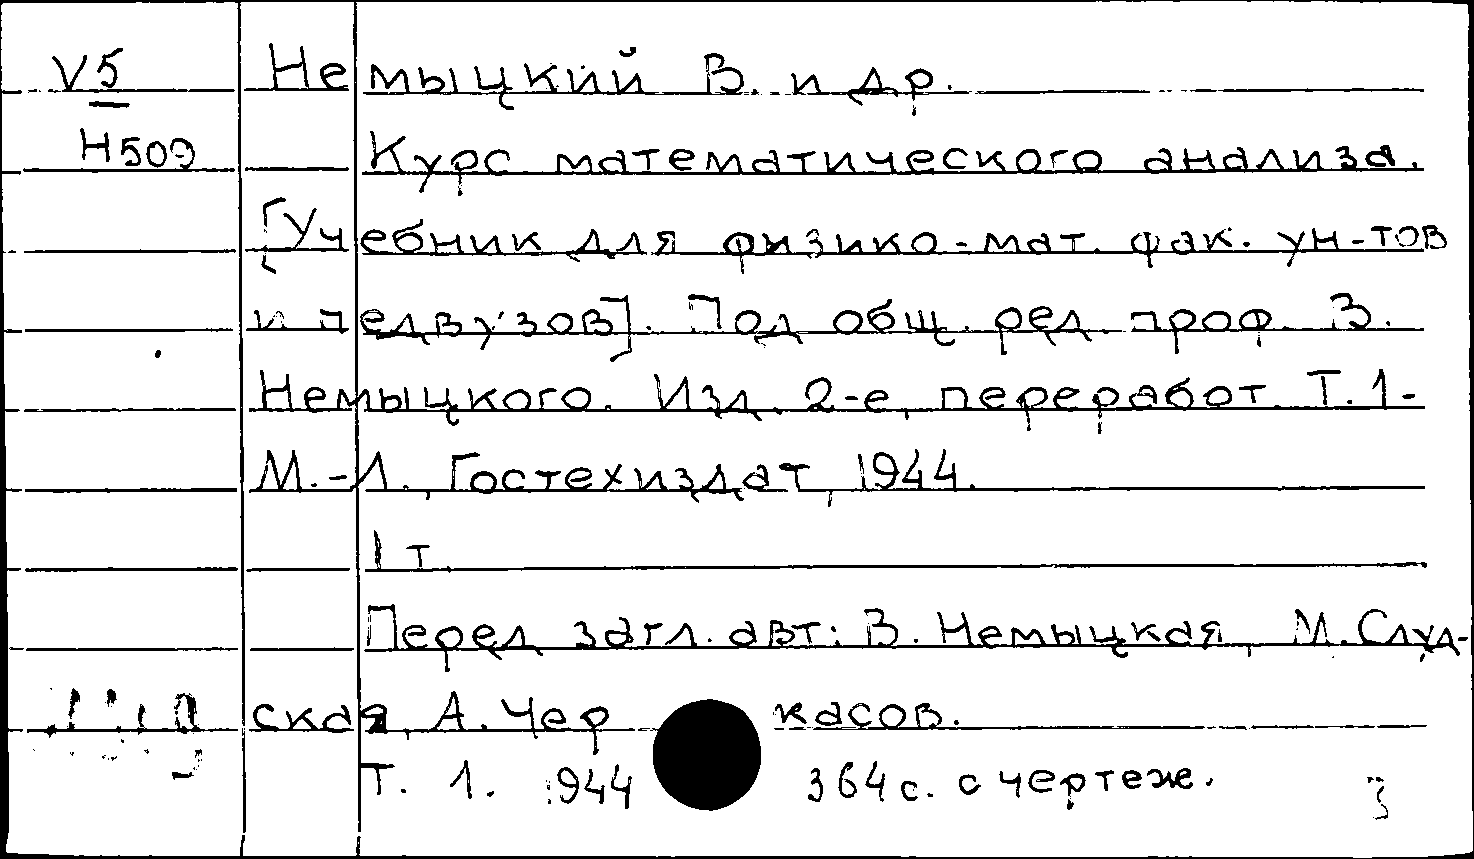 V5 Немыцкий В. и др.
Н509 Курс математического анализа.
[Учебник для физико-мат. фак. ун-тов
и педвузов]. Под общ. ред. проф. В.
Немыцкого. Изд. 2-е, переработ. Т. 1-
М.-Л., Гостехиздат, 1944.
1 т.
Перед загл. авт: В. Немыцкая, М. Слуд-
ская, А. Чер касов.
Т. 1. 1944 364 с. с чертеж.